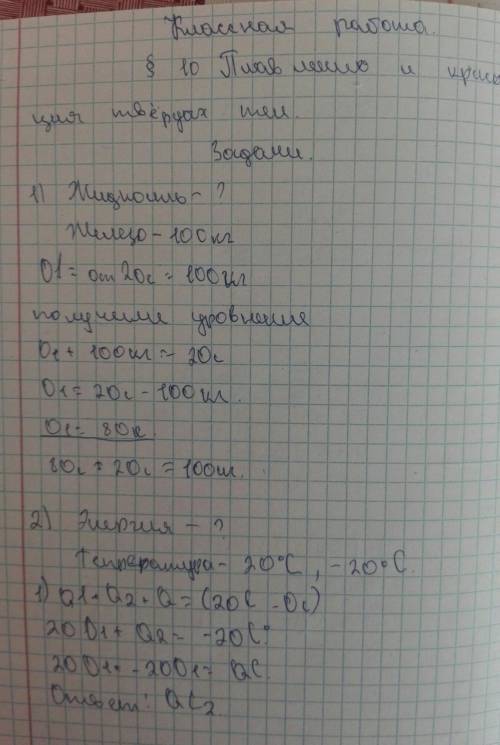 Классная работа.
§ 10 Плавление и крис
ция твёрдах тел.
Задачи.
1) Жидкость - ?
Железо - 100кг
01 = от 20с = 100кг
получили уровнение
01 + 100кг = 20с
01 = 20с - 100кг.
01 = 80с.
80с + 20с = 100кг.
2) Энергия - ?
Температура - 20°С, -20°С.
1) Q1 + Q2 + Q = (20С - 0с)
20 01 + Q2 = -20С°
20 01 - 20 01 = QС.
Ответ: QС2